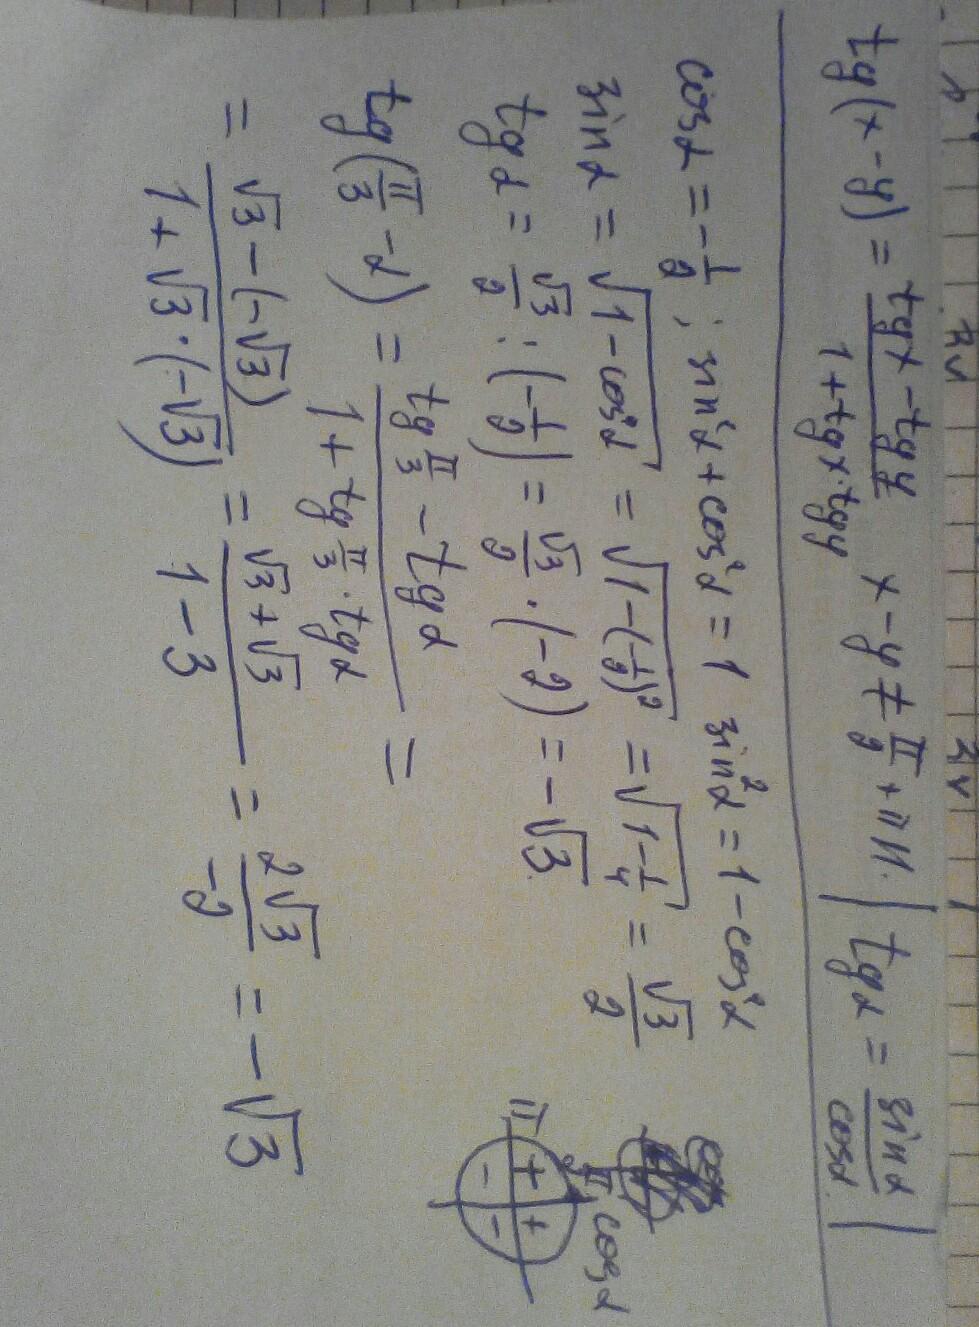 tg(x-y) = \frac{tgx - tgy}{1 + tgx·tgy} x-y ≠ \frac{π}{2} + πn. | tgα = \frac{sinα}{cosα} |
cosα = -\frac{1}{2}; sin²α + cos²α = 1 sin²α = 1 - cos²α
sinα = √(1 - cos²α) = √(1 - (\frac{1}{2})²) = √(1 - \frac{1}{4}) = \frac{√3}{2}
tgα = \frac{√3}{2} : (-\frac{1}{2}) = \frac{√3}{2} · (-2) = -√3.
π cosα
+ +
- -
tg(\frac{π}{3} - α) = \frac{tg\frac{π}{3} - tgα}{1 + tg\frac{π}{3} · tgα} =
= \frac{√3 - (-√3)}{1 + √3·(-√3)} = \frac{√3 + √3}{1 - 3} = \frac{2√3}{-2} = -√3